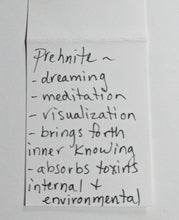 Prehnite ~
- dreaming
- meditation
- visualization
- brings forth
inner knowing
- absorbs toxins
internal +
environmental